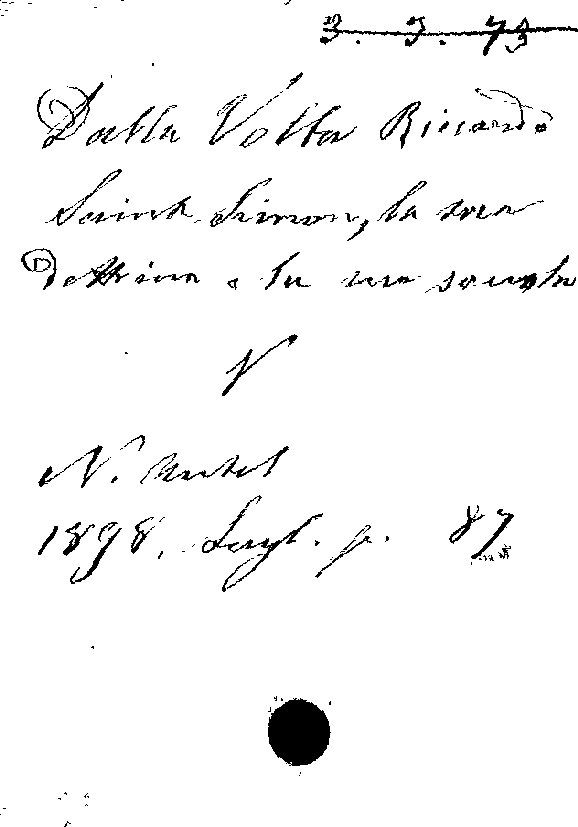 3. 3. 73
Dalla Volta Riccardo
Saint-Simon, la sua
dottrina e la sua scuola
V
N. Antol
1898, Lugl. p. 87